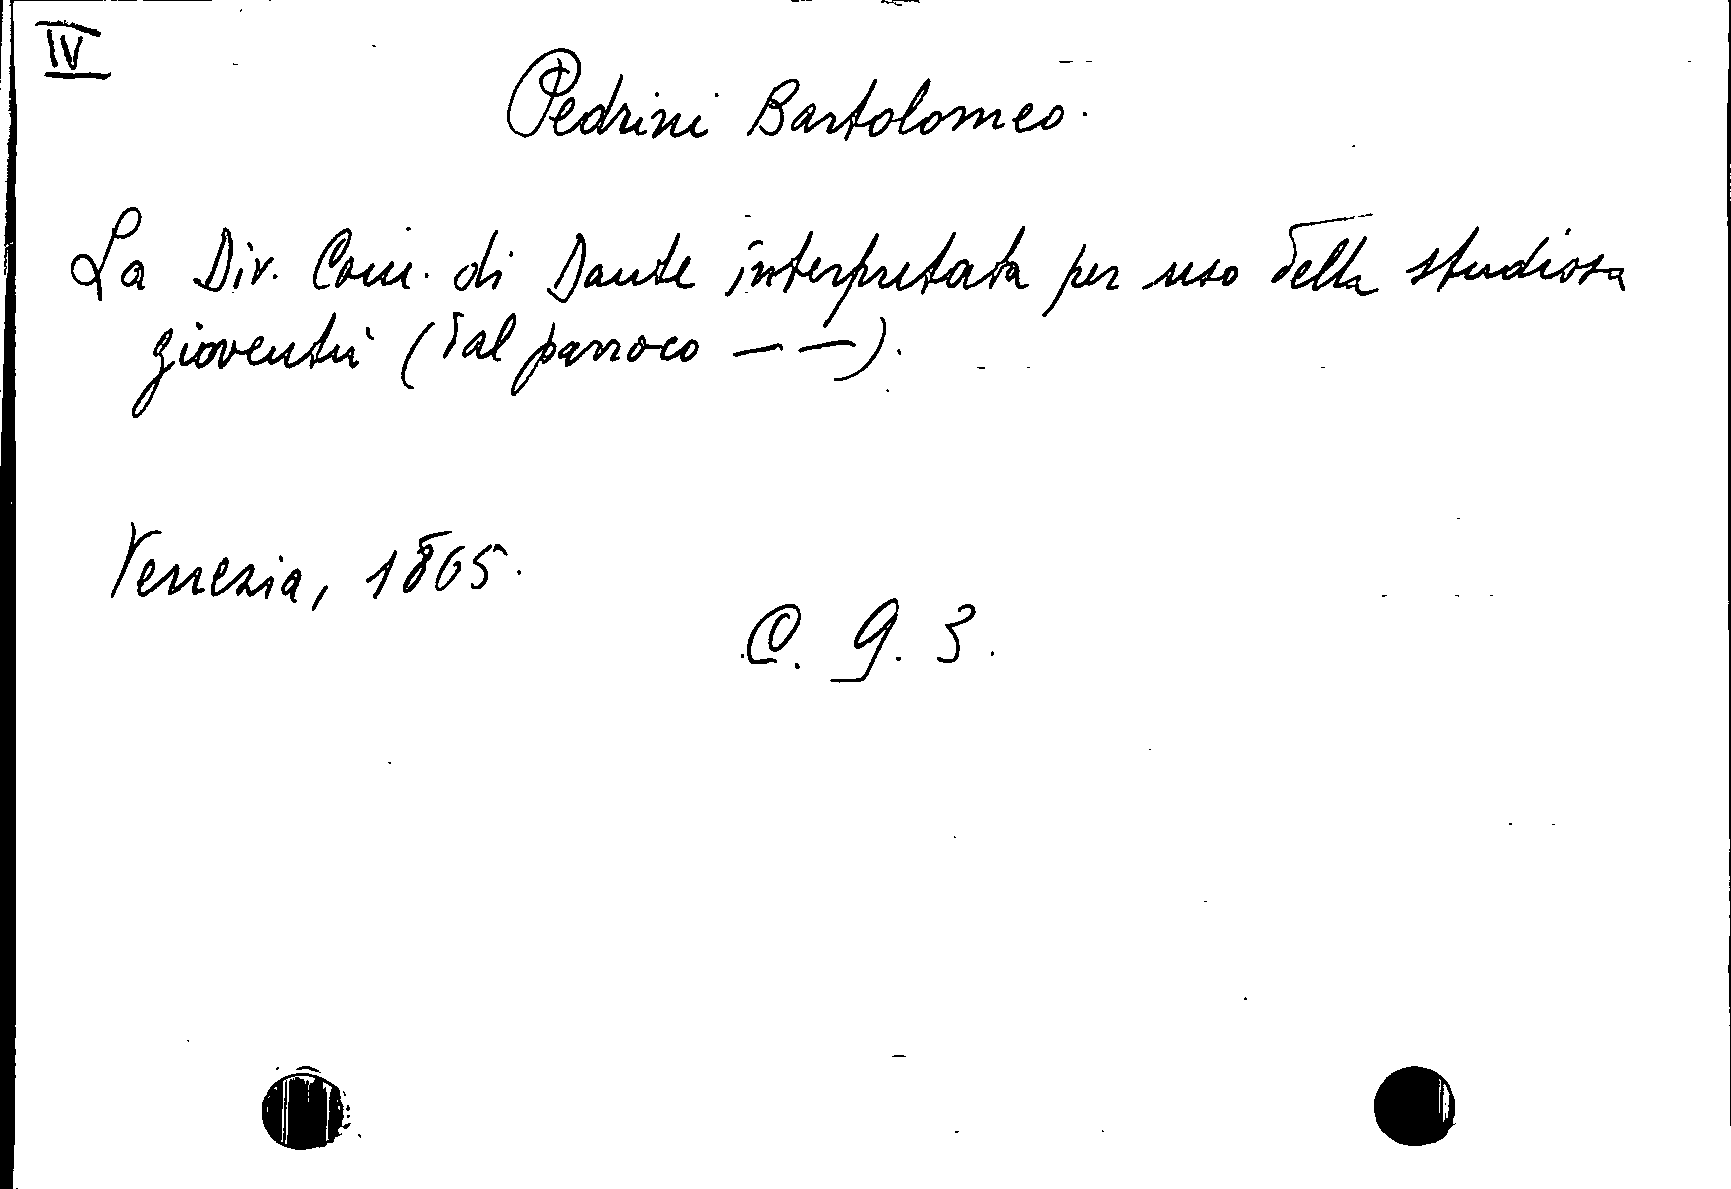 IV
Pedrini Bartolomeo.
La Div. Com. di Dante interpretata per uso della studiosa
gioventù (dal parroco — —).
Venezia, 1865.
C. 9. 3.